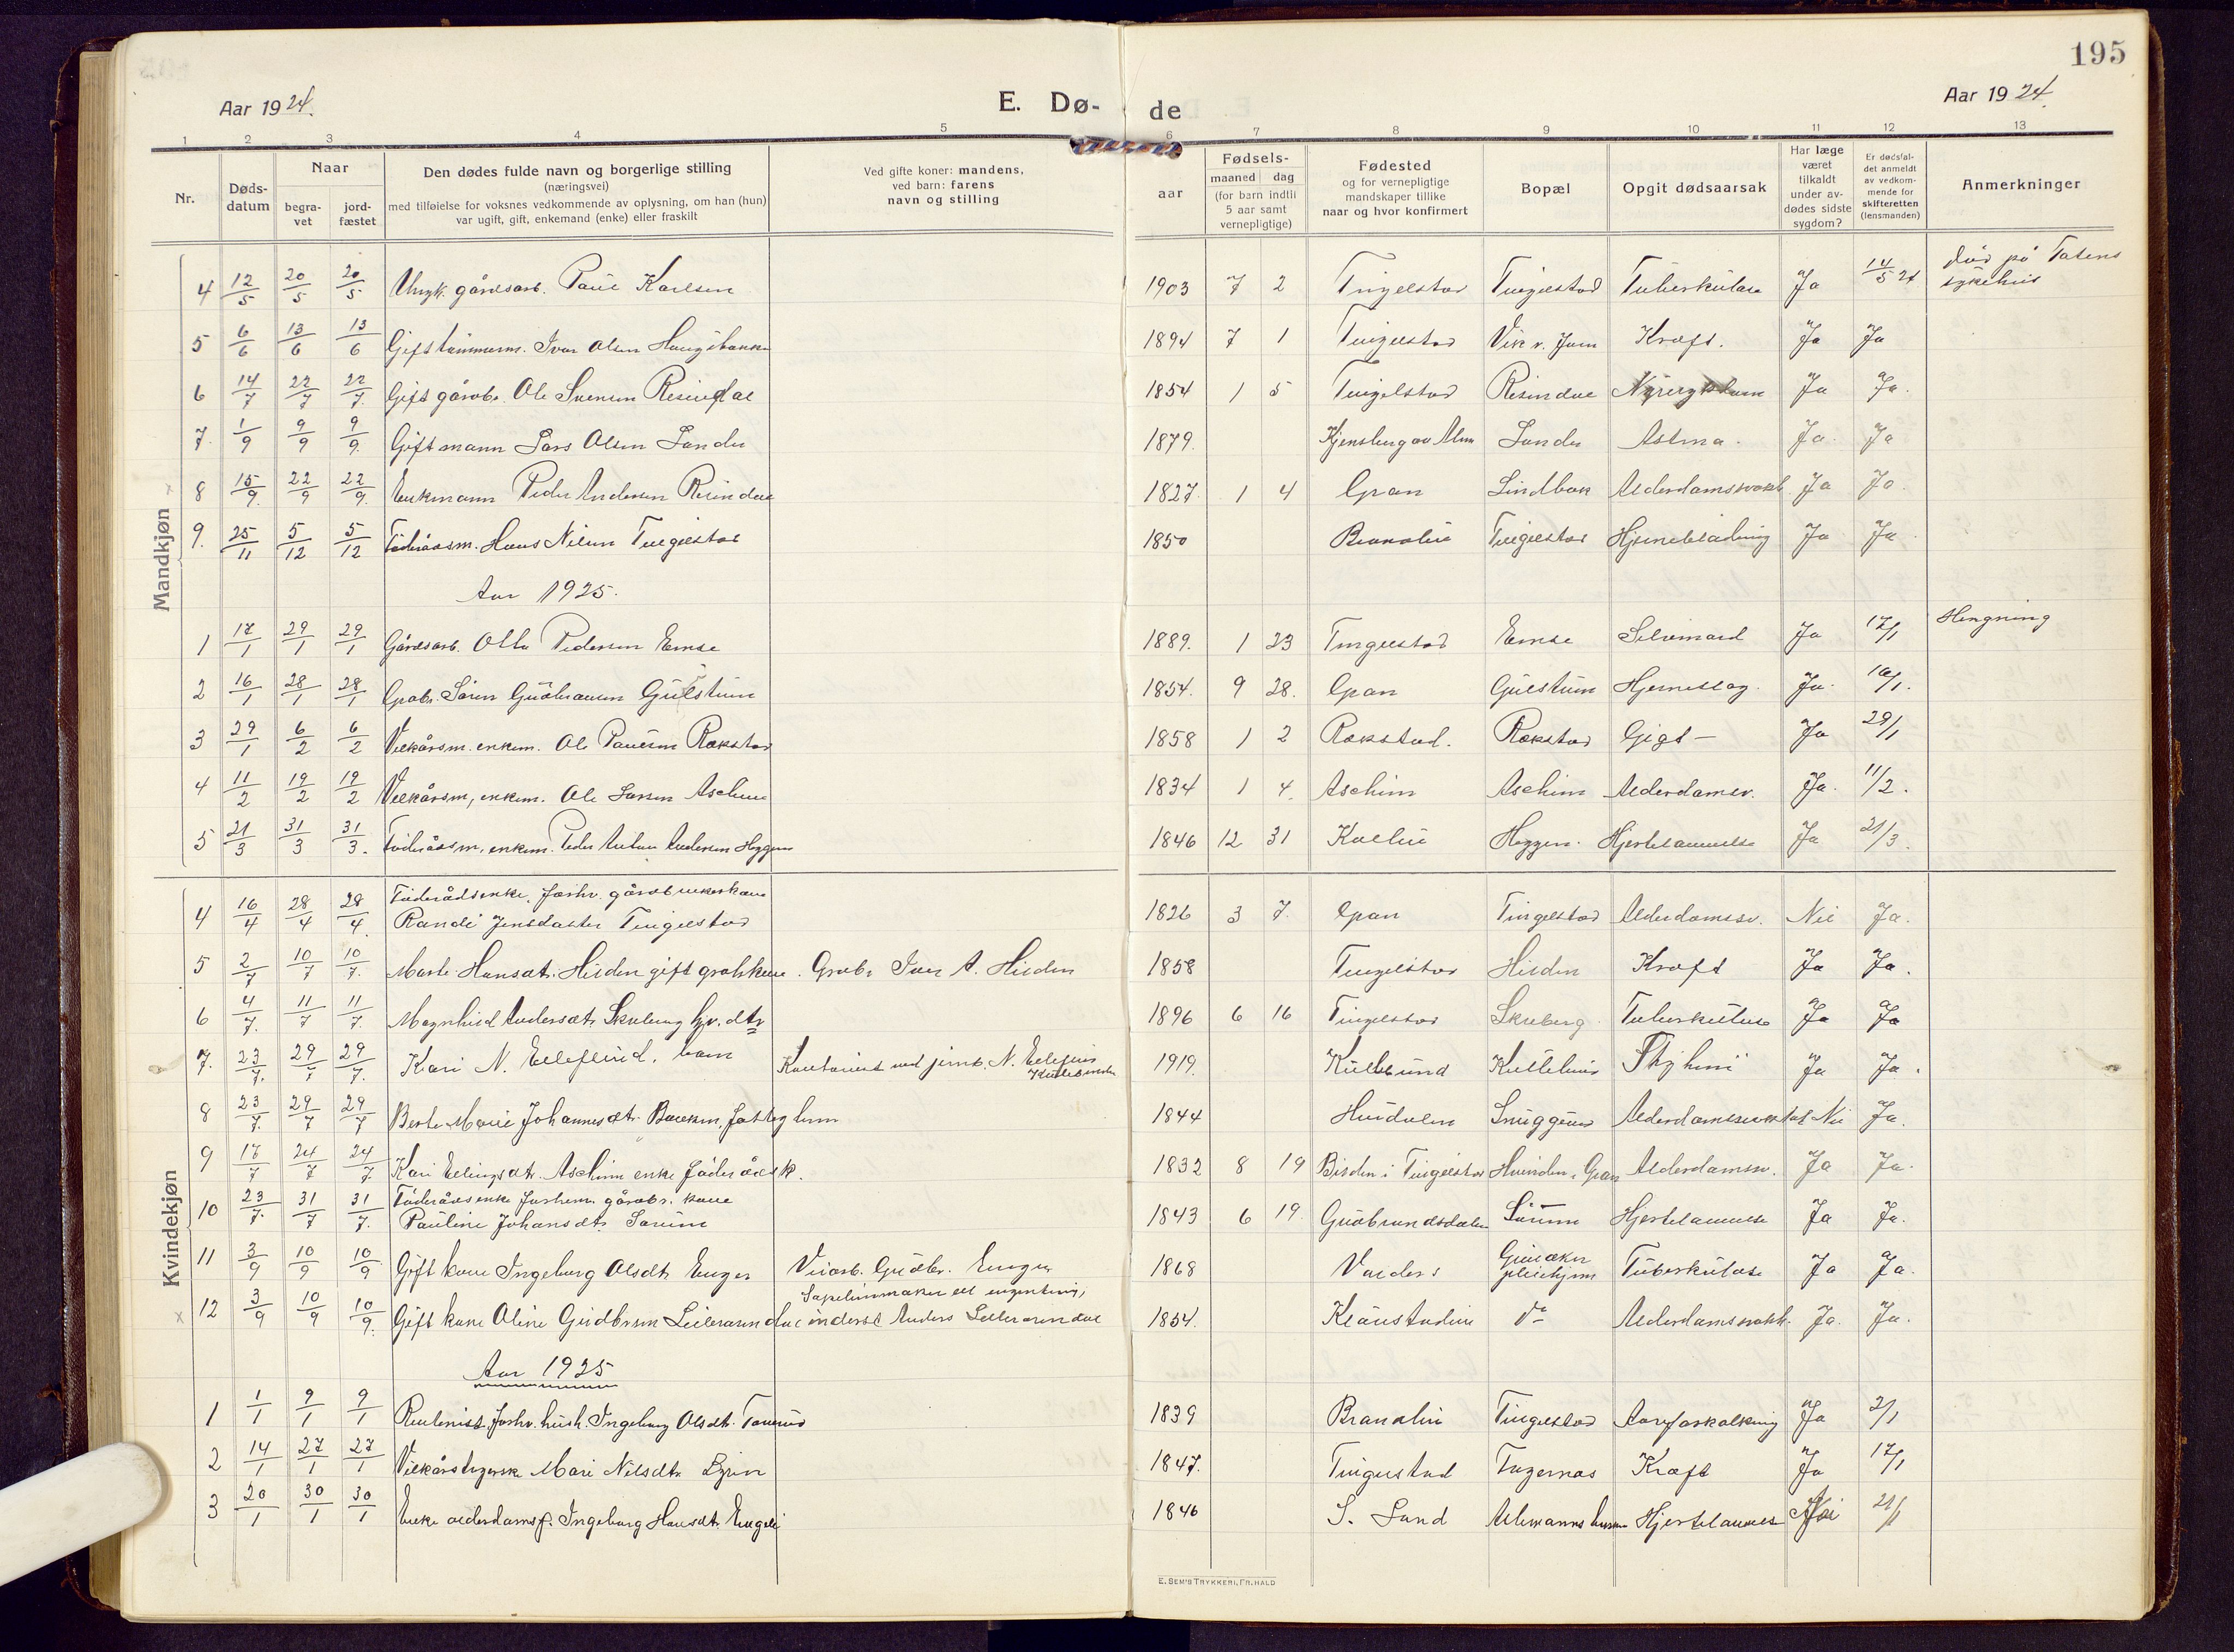 195
Aar 1924.
E. Dø-
de
Aar 1924.
1 2 3 4 5 6 7 8 9 10 11 12 13
Nr.
Døds-datum
Naar
begra-vet
jord-fæstet
Den dødes fulde navn og borgerlige stilling
(næringsvei)
med tilføielse for voksnes vedkommende av oplysning, om han (hun)
var ugift, gift, enkemand (enke) eller fraskilt
Ved gifte koner: mandens,
ved barn: farens
navn og stilling
aar
Fødsels-
maaned dag
(for barn indtil
5 aar samt
vernepligtige)
Fødested
og for vernepligtige
mandskaper tillike
naar og hvor konfirmert
Bopæl
Opgit dødsaarsak
Har læge
været
tilkaldt
under av-
dødes sidste
sygdom?
Er dødsfal-
det anmeldt
av vedkom-
mende for
skifteretten
(lensmanden)
Anmerkninger
Mandkjøn
4 12/5 20/5 20/5 Ungk. gårdsarb. Paul Karlsen 1903 7 2 Tingelstad Tingelstad Tuberkulose Ja 14/5 24 død på Totens sykehus
5 6/6 13/6 13/6 Gift tømmerm. Ivar Olsen 1894 7 1 Tingelstad Vik v. Jaren Kræft. Ja Ja
6 14/7 22/7 22/7 Gift gårdbr. Ole 1854 1 5 Tingelstad Ja Ja.
7. 1/9 9/9 9/9. Gift mann Lars Olsen Sander 1879. Sander Astma. Ja. Ja
8 15/9. 22/9 22/9. Enkmann Peder Andersen 1827. 1 4 Gran Alderdomssvakh. Ja Ja.
9. 25/11 5/12 5/12 Føderådsm. Hans Nilsen Tingelstad 1850 Brandbu Tingelstad Hjerneblødning Ja Ja
Aar 1925.
1 17/1 29/1 29/1 Gårdsarb. Otto Pedersen 1889. 1 23 Tingelstad Selvmord Ja 17/1 Hengning
2 16/1 28/1 28/1 Grdbr. Søren Gudbransen 1854. 9 28. Gran Hjerneslag. Ja. 16/1.
3 29/1 6/2 6/2 Vilkårsm. enkem. Ole Paulsen Rækstad 1858 1 2 Rækstad. Rækstad Gigt – Ja 29/1
4 11/2 19/2 19/2 Vilkårsm, enkem. Ole Larsen Aschim 1834 1 4. Aschim Aschim Alderdomssv. Ja. 11/2.
5 21/3 31/3 31/3. Føderådsm, enkem. Peder Anton Andersen Heggen 1846 12 31 Heggen. Hjertelammelse Ja 21/3.
Kvindekjøn
4 16/4 28/4 28/4. Føderådsenke, forhv. gårdbrukerkone
Randi Jensdatter Tingelstad 1826 3 7. Gran Tingelstad Alderdomssv. Nei Ja.
5 2/7 10/7 10/7. Marte Hansdt. Hilden gift grdbr.kone. Grdbr Iver A. Hilden 1858 Tingelstad Hilden Kræft Ja Ja.
6 4/7. 11/7 11/7. Magnhild Andersdt. Skreberg gjv. dtr 1896 6 16 Tingelstad Skreberg. Tuberkulose Ja Ja
7. 23/7. 29/7 29/7. Kari N. barn Kontorist ved jernb. N. 1919. Ja Ja.
8 23/7. 29/7 29/7 Berte Marie Johannesdtr. 1844 Alderdomssvakhet Nei Ja.
9 17/7 24/7 24/7. Kari Erlingsdt. Aschim enke føderådsk. 1832 8 19 i Tingelstad i Gran Alderdomssv. Ja Ja.
10 23/7. 31/7 31/7. Føderådsenke forhenv. gårdbr. kone
Pauline Johansdt. Sørum 1843 6 19. Gudbrandsdalen Sørum Hjertelammelse Ja Ja.
11 3/9 10/9 10/9. Gift kone Ingeborg Olsdt. Enger Veiarb. Gudbr. Enger 1868 Valders pleiehjem Tuberkulose Ja Ja.
12 3/9 10/9 10/9. Gift kone Oline inderst Anders 1854. do Alderdomssvakh. Ja. Ja.
Aar 1925
1 1/1 9/1 9/1 Rentenist, forhv. hush. Ingeborg Olsdt. 1839 Brandbu Tingelstad Aareforkalkning Ja 2/1
2 14/1 27/1 27/1 Vilkårstagerske Mari Nilsdtr 1847. Tingelstad Kræft Ja 17/1
3 20/1 30/1 30/1 Enke alderdomsf. Ingeborg Hansdt. 1846 S. Land Hjertelammelse Nei 21/1
E. SEM'S TRYKKERI, FR. HALD